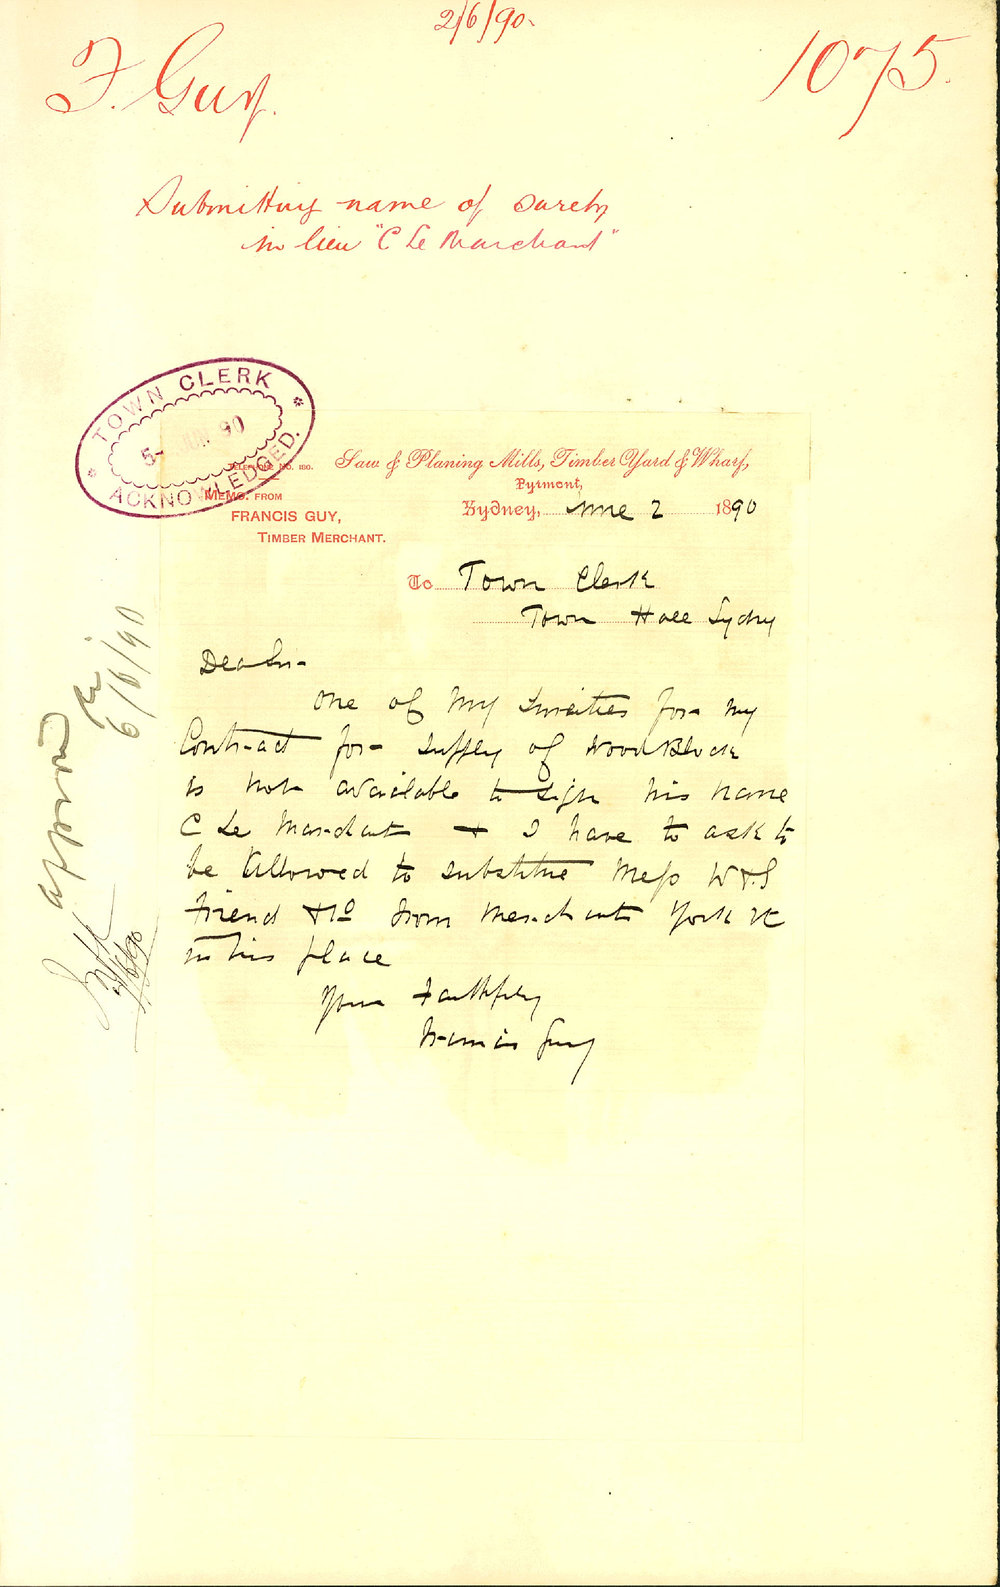 2/6/90.
F. Guy.
1075.
Submitting name of surety
in lieu "C Le Marchant"
TOWN CLERK
5- JUN 90
ACKNOWLEDGED.
TELEPHONE NO. 180.
Saw & Planing Mills, Timber Yard & Wharf,
Pyrmont,
MEMO. FROM
FRANCIS GUY,
TIMBER MERCHANT.
Sydney, June 2 1890
To Town Clerk
Town Hall Sydney
Dear Sir
One of my sureties for my
Contract for supply of Wood Block
is not available to sign his name
C Le Marchant & I have to ask to
be allowed to substitute Mess W & S
Friend & Co Iron Merchants York St
in his place
Yours Faithfully
Francis Guy
approved
6/6/90
5/6/90